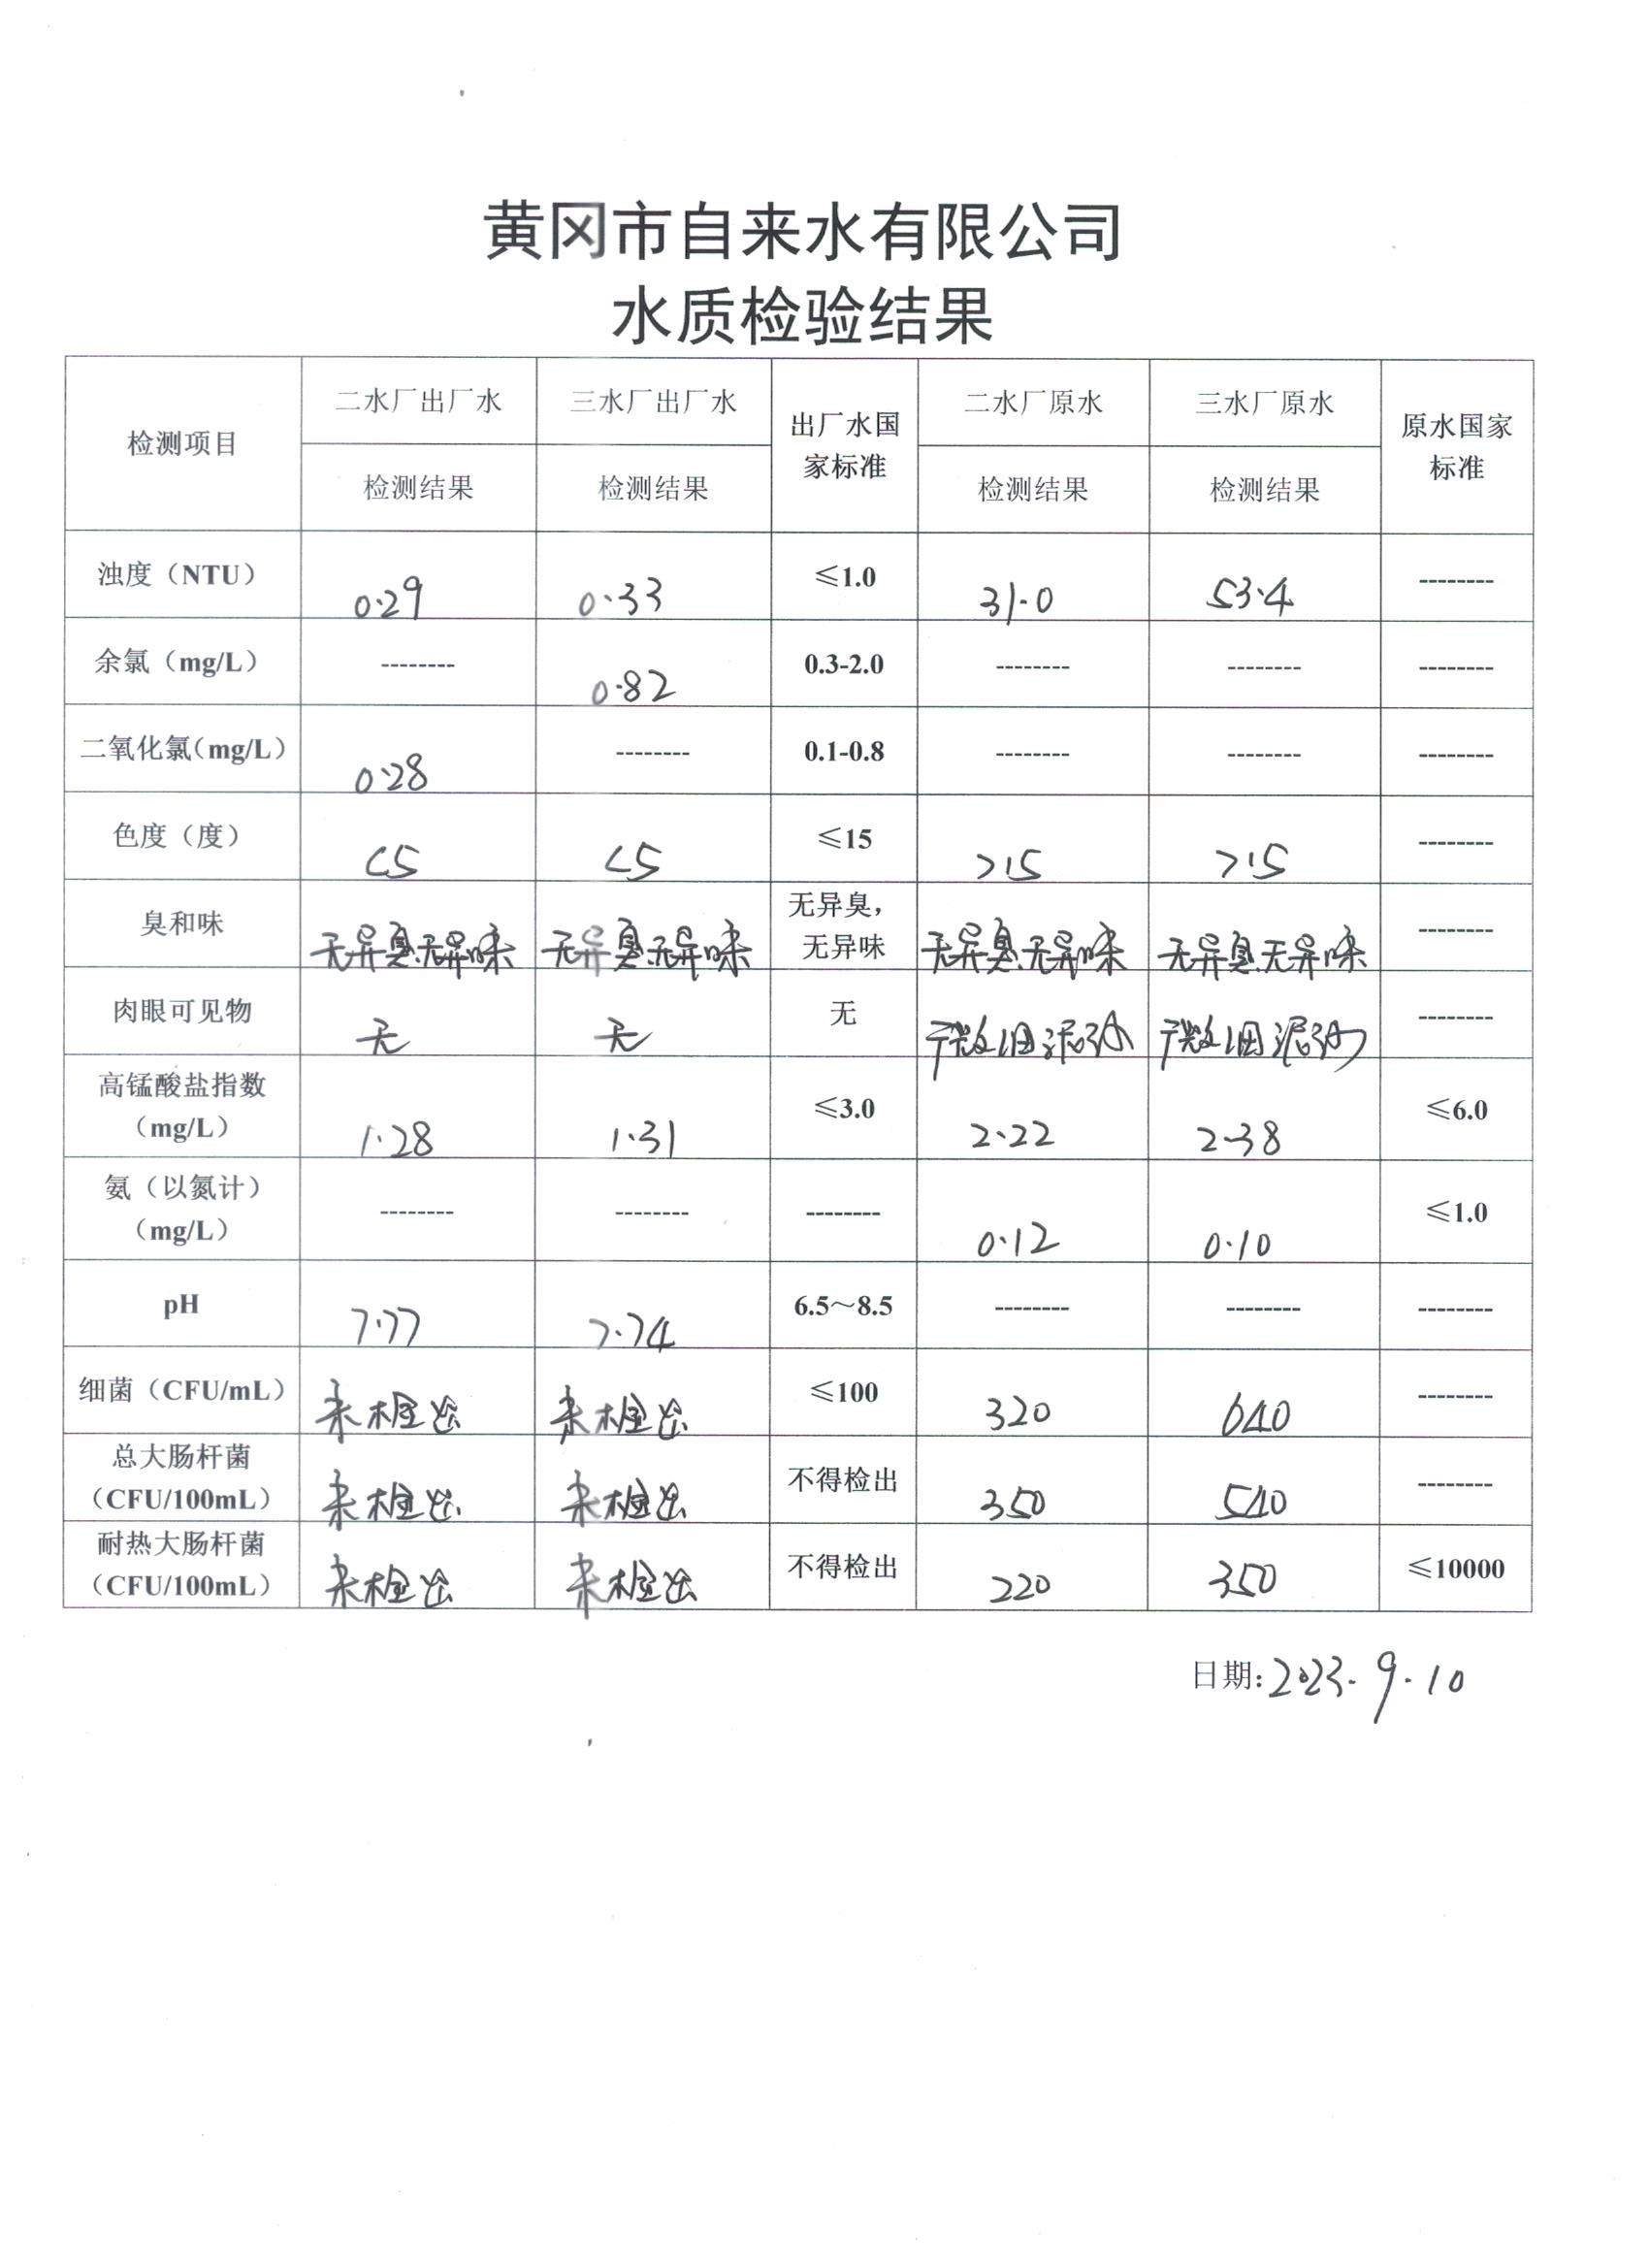 黄冈市自来水有限公司
水质检验结果
检测项目 二水厂出厂水 三水厂出厂水 出厂水国家标准 二水厂原水 三水厂原水 原水国家标准
检测结果 检测结果 检测结果 检测结果
浊度（NTU） 0.29 0.33 ≤1.0 31.0 53.4 --------
余氯（mg/L） -------- 0.82 0.3-2.0 -------- -------- --------
二氧化氯（mg/L） 0.28 -------- 0.1-0.8 -------- -------- --------
色度（度） <5 <5 ≤15 >15 >15 --------
臭和味 无异臭.无异味 无异臭.无异味 无异臭，无异味 无异臭.无异味 无异臭.无异味 --------
肉眼可见物 无 无 无 微细泥沙 微细泥沙 --------
高锰酸盐指数（mg/L） 1.28 1.31 ≤3.0 2.22 2.38 ≤6.0
氨（以氮计）（mg/L） -------- -------- -------- 0.12 0.10 ≤1.0
pH 7.77 7.74 6.5～8.5 -------- -------- --------
细菌（CFU/mL） 未检出 未检出 ≤100 320 640 --------
总大肠杆菌（CFU/100mL） 未检出 未检出 不得检出 350 540 --------
耐热大肠杆菌（CFU/100mL） 未检出 未检出 不得检出 220 350 ≤10000
日期：2023.9.10